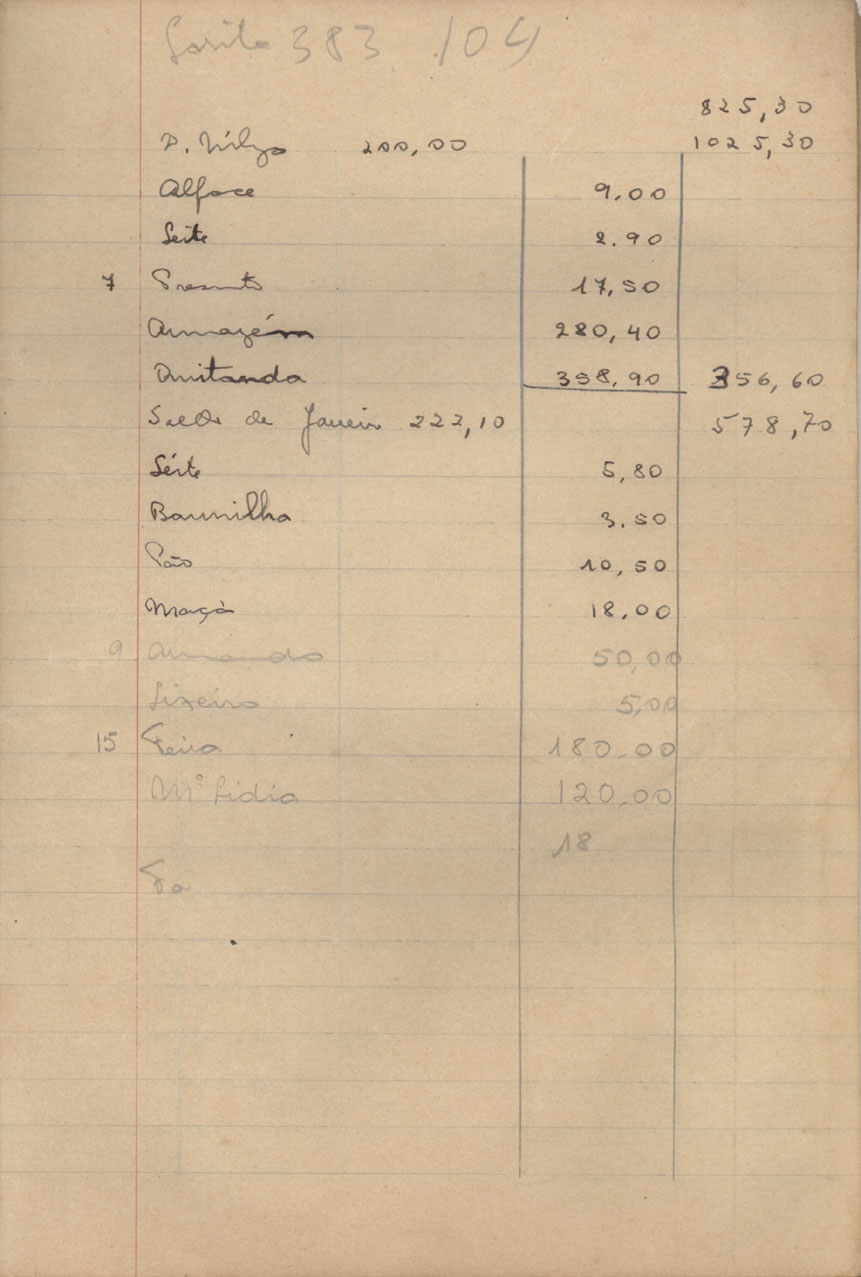 383 104
825,30
D. Nilza 200,00 1025,30
Alface 9,00
Leite 2.90
7 Presunto 17,50
Armazém 280,40
Quitanda 358,90 356,60
Saldo de Janeiro 222,10 578,70
Leite 5,80
Baunilha 3.50
Pão 10,50
Maçã 18.00
9 Armando 50,00
Lixeiro 5,00
15 Feira 180.00
Mª Lidia 120,00
18
Fa